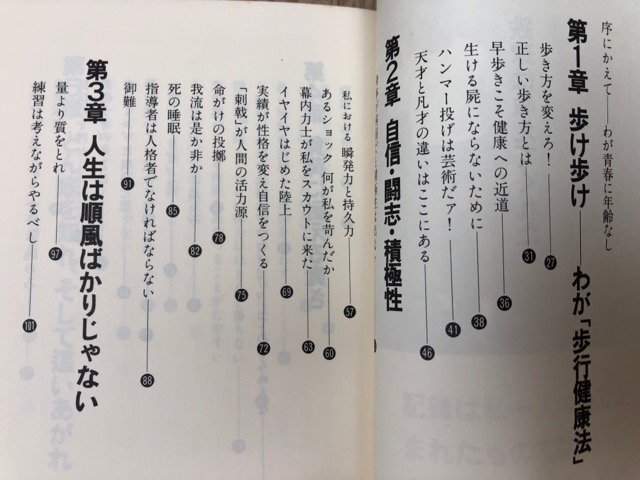 序にかえて――わが青春に年齢なし
第1章 歩け歩け――わが「歩行健康法」
歩き方を変えろ!――27
正しい歩き方とは――31
早歩きこそ健康への近道――36
生ける屍にならないために――38
ハンマー投げは芸術だァ!――41
天才と凡才の違いはここにある――46
第2章 自信・闘志・積極性
私における瞬発力と持久力――57
あるショック 何が私を苛んだか――60
幕内力士が私をスカウトに来た――63
イヤイヤはじめた陸上――69
実績が性格を変え自信をつくる――72
「刺戟」が人間の活力源――75
命がけの投擲――78
我流は是か非か――82
死の睡眠――85
指導者は人格者でなければならない――88
御難――91
第3章 人生は順風ばかりじゃない
量より質をとれ――97
練習は考えながらやるべし――101